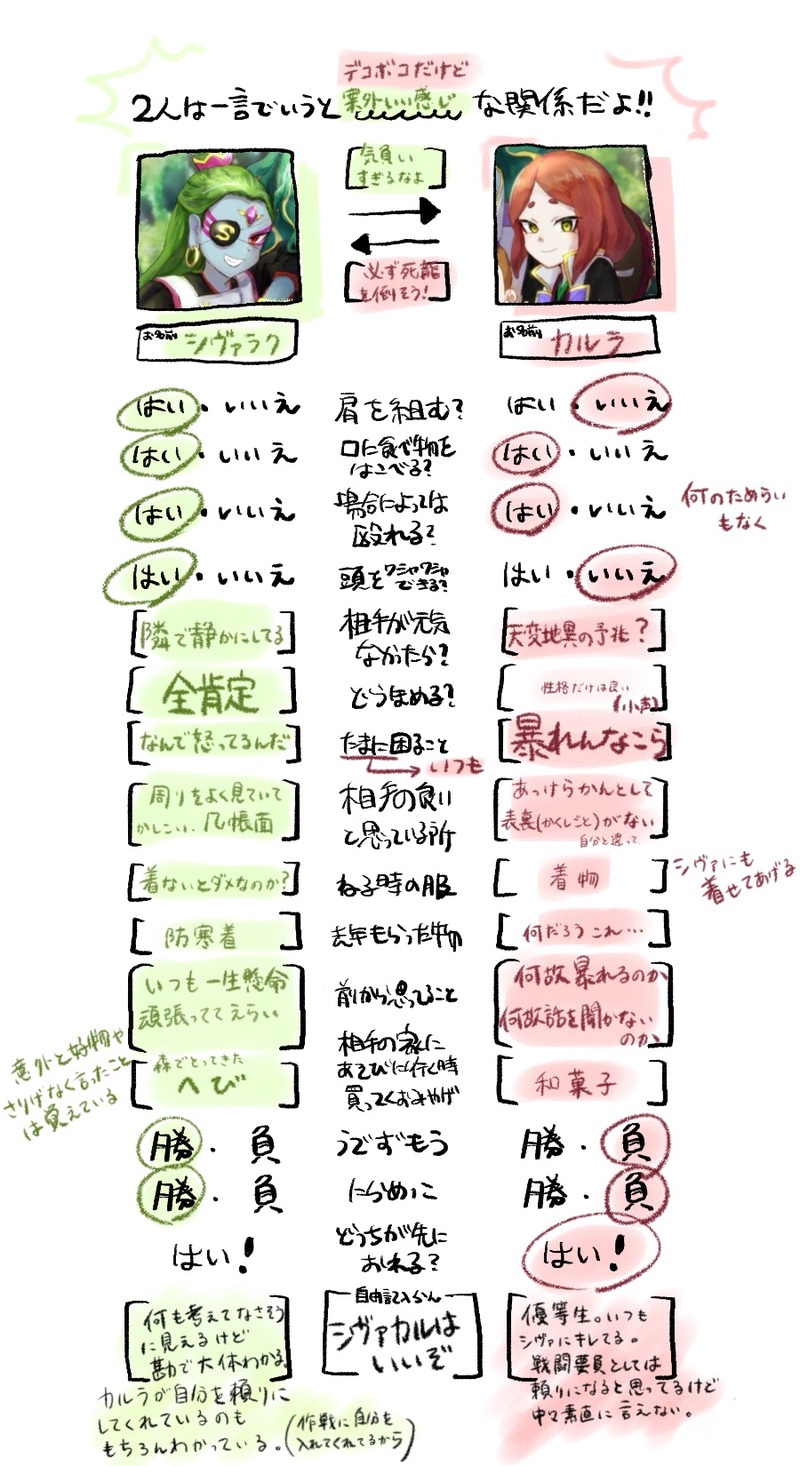 デコボコだけど
2人は一言でいうと案外いい感じな関係だよ!!
気負い
すぎるなよ
必ず死龍
を倒そう!
S
お名前 シヴァラク
お名前 カルラ
はい・いいえ 肩を組む? はい・いいえ
はい・いいえ 口に食べ物を
はこべる? はい・いいえ
はい・いいえ 場合によっては
殴れる? はい・いいえ
何のためらい
もなく
はい・いいえ 頭をワシャワシャ
できる? はい・いいえ
隣で静かにしてる
相手が元気
なかったら?
天変地異の予兆?
全肯定
どうほめる?
性格だけは良い
(小声)
なんで怒ってるんだ
たまに困ること
いつも
暴れんなこら
周りをよく見ていて
かしこい、几帳面
相手の良い
と思っている所
あっけらかんとして
表裏(かくしごと)がない
自分と違って
着ないとダメなのか?
ねる時の服
着物
シヴァにも
着せてあげる
防寒着
去年もらった物
何だろうこれ…
いつも一生懸命
頑張っててえらい
前から思ってること
何故暴れるのか
何故話を聞かない
のか
意外と好物や
さりげなく言ったこと
は覚えている
森でとってきた
へび
相手の家に
あそびに行く時
買ってくおみやげ
和菓子
勝・負 うでずもう 勝・負
勝・負 にらめっこ 勝・負
はい! どっちが先に
おれる? はい!
何も考えてなさそう
に見えるけど
勘で大体わかる
カルラが自分を頼りに
してくれているのも
もちろんわかっている。
(作戦に自分を
入れてくれてるから)
自由記入らん
シヴァカルは
いいぞ
優等生。いつも
シヴァにキレてる。
戦闘要員としては
頼りになると思ってるけど
中々素直に言えない。